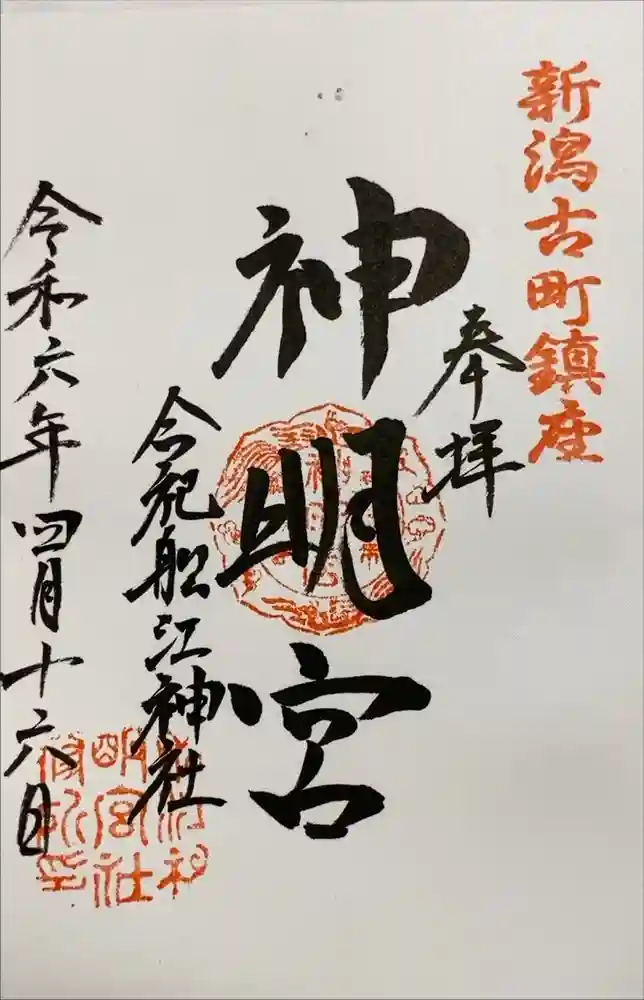 新潟古町鎮座
奉拝
神明宮
合祀船江神社
令和六年四月十六日